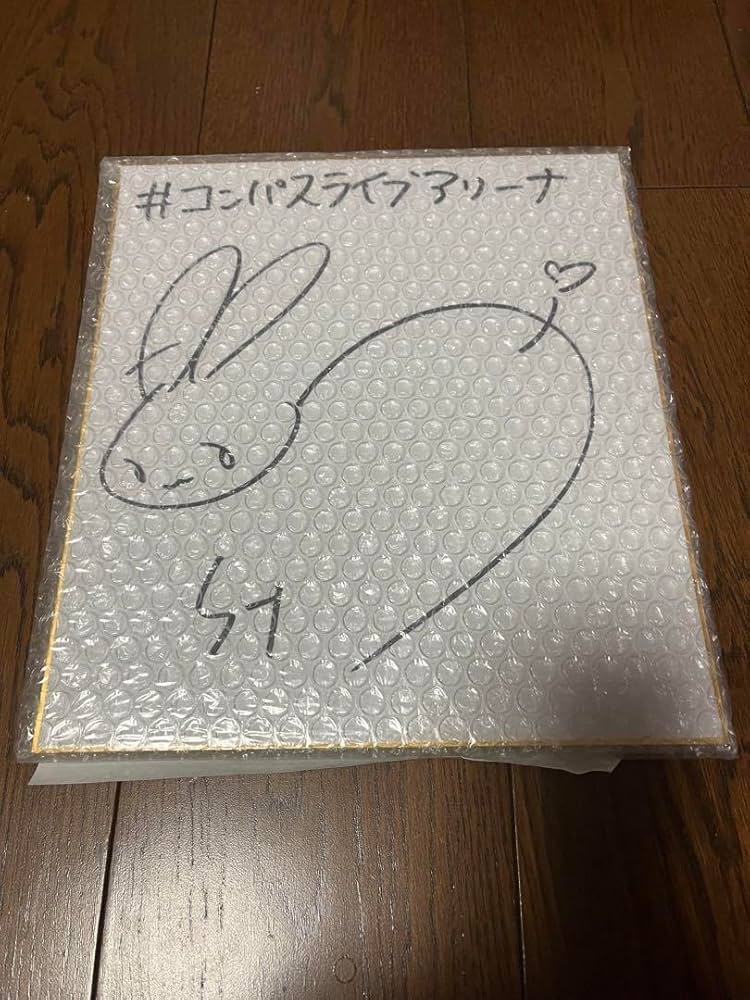 #コンパスライブアリーナ